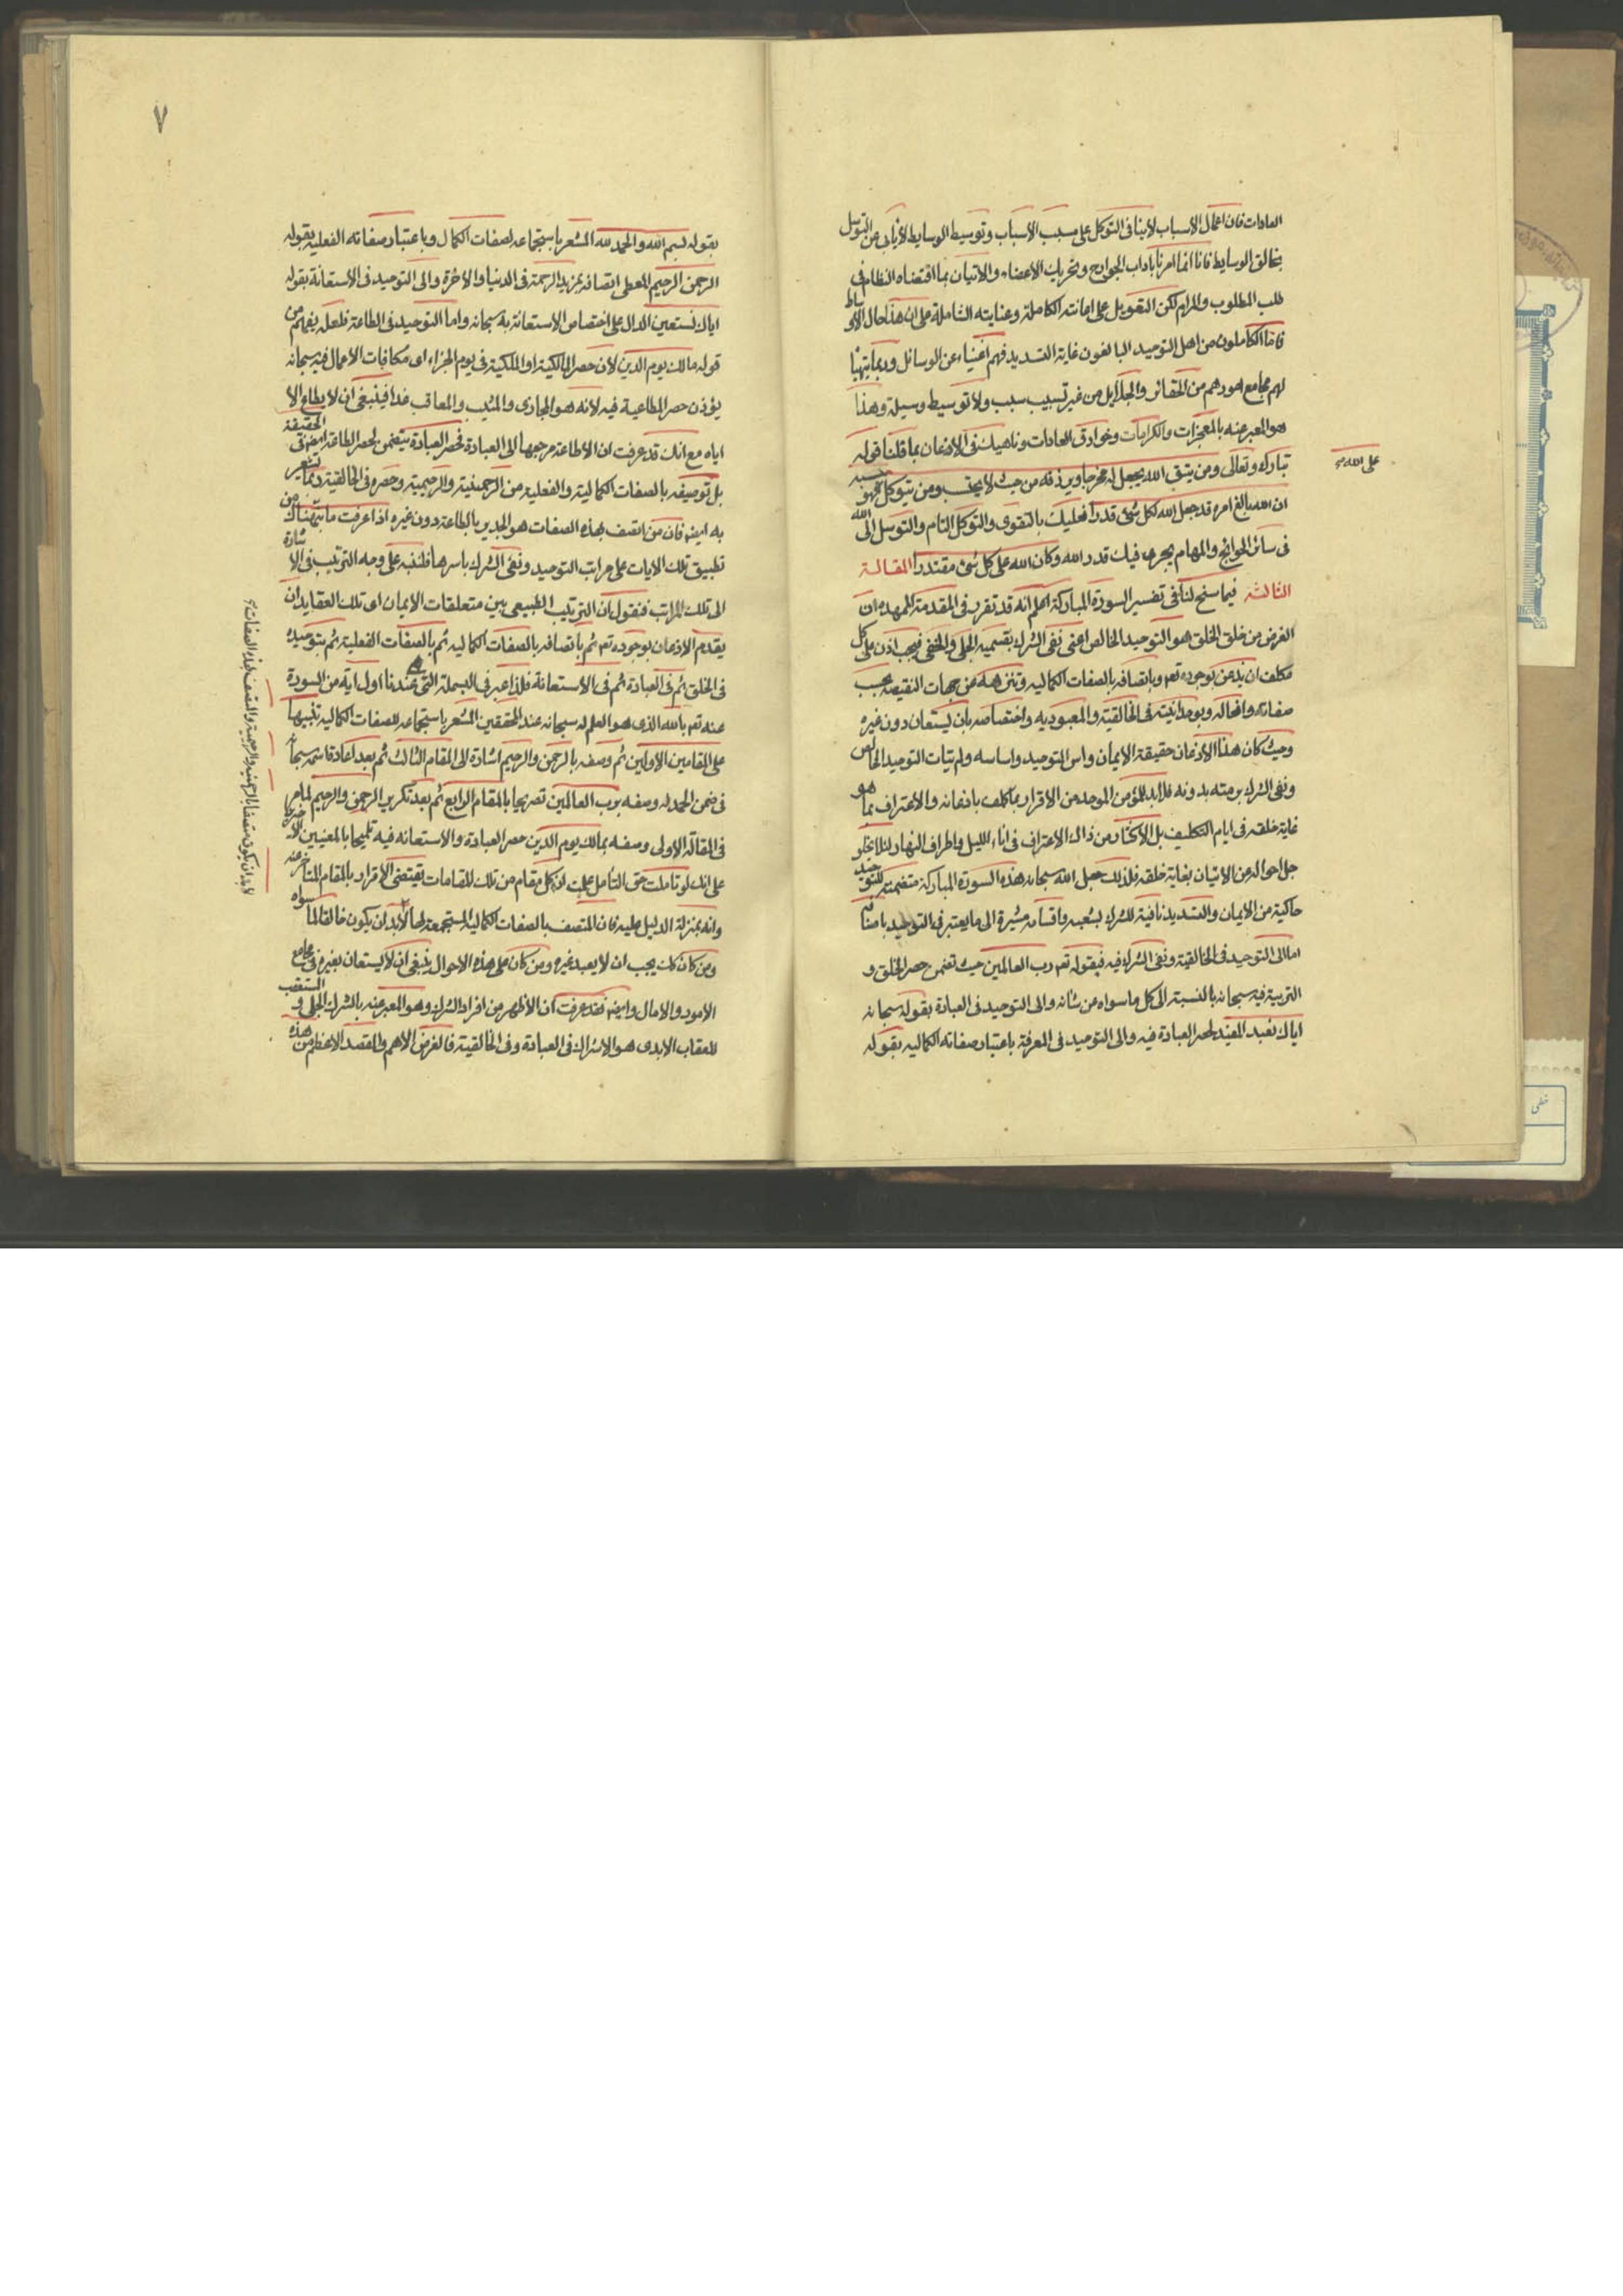 العادات فان اعمال الاسباب لا ينافى التوكل على مسبب الاسباب وتوسيط الوسايط لا يابى عن التوسل
بخالق الوسايط فانا انما امرنا باداب الجوارح وتحريك الاعضاء والاتيان بما اقتضاه النظام فى
طلب المطلوب والمرام لكن التعويل على اعانته الكاملة وعنايته الشاملة على ان هذا حال الاوساط
فاما الكاملون من اهل التوحيد البالغون غاية التسديد فهم اغنياء عن الوسائل وربما يتهيا
لهم مجامع امورهم من الحقائر والجلايل من غير تسبيب سبب ولا توسيط وسيلة وهذا
هو المعبر عنه بالمعجزات والكرامات وخوارق العادات وناهيك فى الاذعان بما قلنا قوله
تبارك وتعالى ومن يتق الله يجعل له مخرجا ويرزقه من حيث لا يحتسب ومن يتوكل فهو حسبه
على الله
ان الله بالغ امره قد جعل الله لكل شئ قدرا فعليك بالتقوى والتوكل التام والتوسل الى الله
فى سائر الحوائج والمهام يجرى فيك قدر الله وكان الله على كل شئ مقتدرا المقالة
الثالثة فيما سنح لنا فى تفسير السورة المباركة اعلم انه قد تقرر فى المقدمة الممهدة ان
الغرض من خلق الخلق هو التوحيد الخالص اعنى نفى الشرك بقسميه الجلى والخفى فيجب اذن على كل
مكلف ان يذعن بوجوده تعم وباتصافه بالصفات الكماليه وتنزهه عن جهات النقيصه بحسب
صفاته وافعاله وبوحدانيته فى الخالقية والمعبودية واختصاصه بان يستعان دون غيره
وحيث كان هذا الاذعان حقيقة الايمان واس التوحيد واساسه ولم يتات التوحيد الخالص
ونفى الشرك برمته بدونه فلابد للمؤمن الموحد من الاقرار بما كلف باذعانه والاعتراف بما هو
غاية خلقه فى ايام التكليف بل الاكثار من ذاك الاعتراف فى اناء الليل واطراف النهار لئلا يخلو
جل احواله عن الاتيان بغاية خلقه فلذلك جعل الله سبحانه هذه السورة المباركة متضمنة للتوحيد
حاكية من الايمان والتسديد نافية للشرك بشعبه واقسامه مشيرة الى ما يعتبر فى التوحيد باصنافه
اما الى التوحيد فى الخالقية ونفى الشرك فيه فبقوله تعم رب العالمين حيث تضمن حصر الخلق و
التربية فيه سبحانه بالنسبة الى كل ما سواه من شانه والى التوحيد فى العبادة بقوله سبحانه
اياك نعبد المفيد لحصر العبادة فيه والى التوحيد فى المعرفة باعتبار صفاته الكماليه بقوله
٧
بقوله بسم الله والحمد لله المشعر باستجماعه لصفات الكمال وباعتبار صفاته الفعلية بقوله
الرحمن الرحيم المعطى اتصافه بمزيد الرحمة فى الدنيا والاخرة والى التوحيد فى الاستعانة بقوله
اياك نستعين الدال على اختصاص الاستعانة به سبحانه واما التوحيد فى الطاعة فلعله يفهم من
قوله مالك يوم الدين لان حصر المالكية او الملكية فى يوم الجزاء اى مكافات الاعمال فيه سبحانه
يؤذن حصر المطاعية فيه لانه هو المجازى والمثيب والمعاقب غدا فينبغى ان لا يطاع الا
اياه مع انك قد عرفت ان الاطاعة مرجعها الى العبادة فحصر العبادة يتضمن لحصر الطاعة ايضا فى الحقيقة
بل توصيفه بالصفات الكمالية والفعلية من الرحمنية والرحيمية وحصره فى الخالقية ربما يشعر
به ايضا فان من اتصف بهذه الصفات هو الجدير بالطاعة دون غيره اذا عرفت ما نبهناك من
تطبيق تلك الايات على مراتب التوحيد ونفى الشرك باسرها فلننبه على وجه الترتيب فى الاشارة
الى تلك المراتب فنقول ان الترتيب الطبيعى بين متعلقات الايمان اى تلك العقايد ان
يقدم الاذعان بوجوده تعم ثم باتصافه بالصفات الكماليه ثم بالصفات الفعلية ثم بتوحيده
فى الخلق ثم فى العبادة ثم فى الاستعانة فلذا عبر فى البسملة التى هى عندنا اول اية من السورة
عنه تعم بالله الذى هو العلم له سبحانه عند المحققين المشعر باستجماعه للصفات الكماليه تنبيها
على المقامين الاولين ثم وصفه بالرحمن والرحيم اشارة الى المقام الثالث ثم بعد اعادة اسمه سبحانه
فى ضمن الحمد له وصفه برب العالمين تصريحا بالمقام الرابع ثم بعد تكرير الرحمن والرحيم لما مر
فى المقالة الاولى وصفه بمالك يوم الدين حصر العبادة والاستعانه فيه تلميحا بالمعنيين الاخيرين
على انك لو تاملت حق التامل علمت ان كل مقام من تلك المقامات يقتضى الاقرار بالمقام المتاخر عنه
وانه بمنزلة الدليل عليه فان المتصف بالصفات الكمالية المستجمعة لها لابد ان يكون خالقا لما سواه
لابد ان يكون متصفا بالرحمنيه والرحيمية والمتصف بهذه الصفات
ومن كان كك يجب ان لا يعبد غيره ومن كان على هذه الاحوال ينبغى ان لا يستعان بغيره فى مجامع
الامور والامال وايضا فقد عرفت ان الاظهر من افراد الشرك وهو المعبر عنه بالشرك الجلى و المستعقب
للعقاب الابدى هو الاشراك فى العبادة وفى الخالقية فالغرض الاهم والمقصد الاعظم من هذه